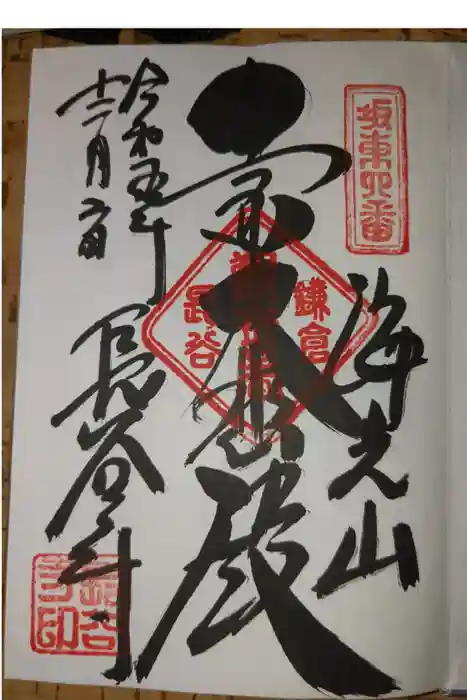 坂東四番
海光山
鎌倉
大悲殿
長谷
令和五年
十二月六日
長谷寺
長谷寺印